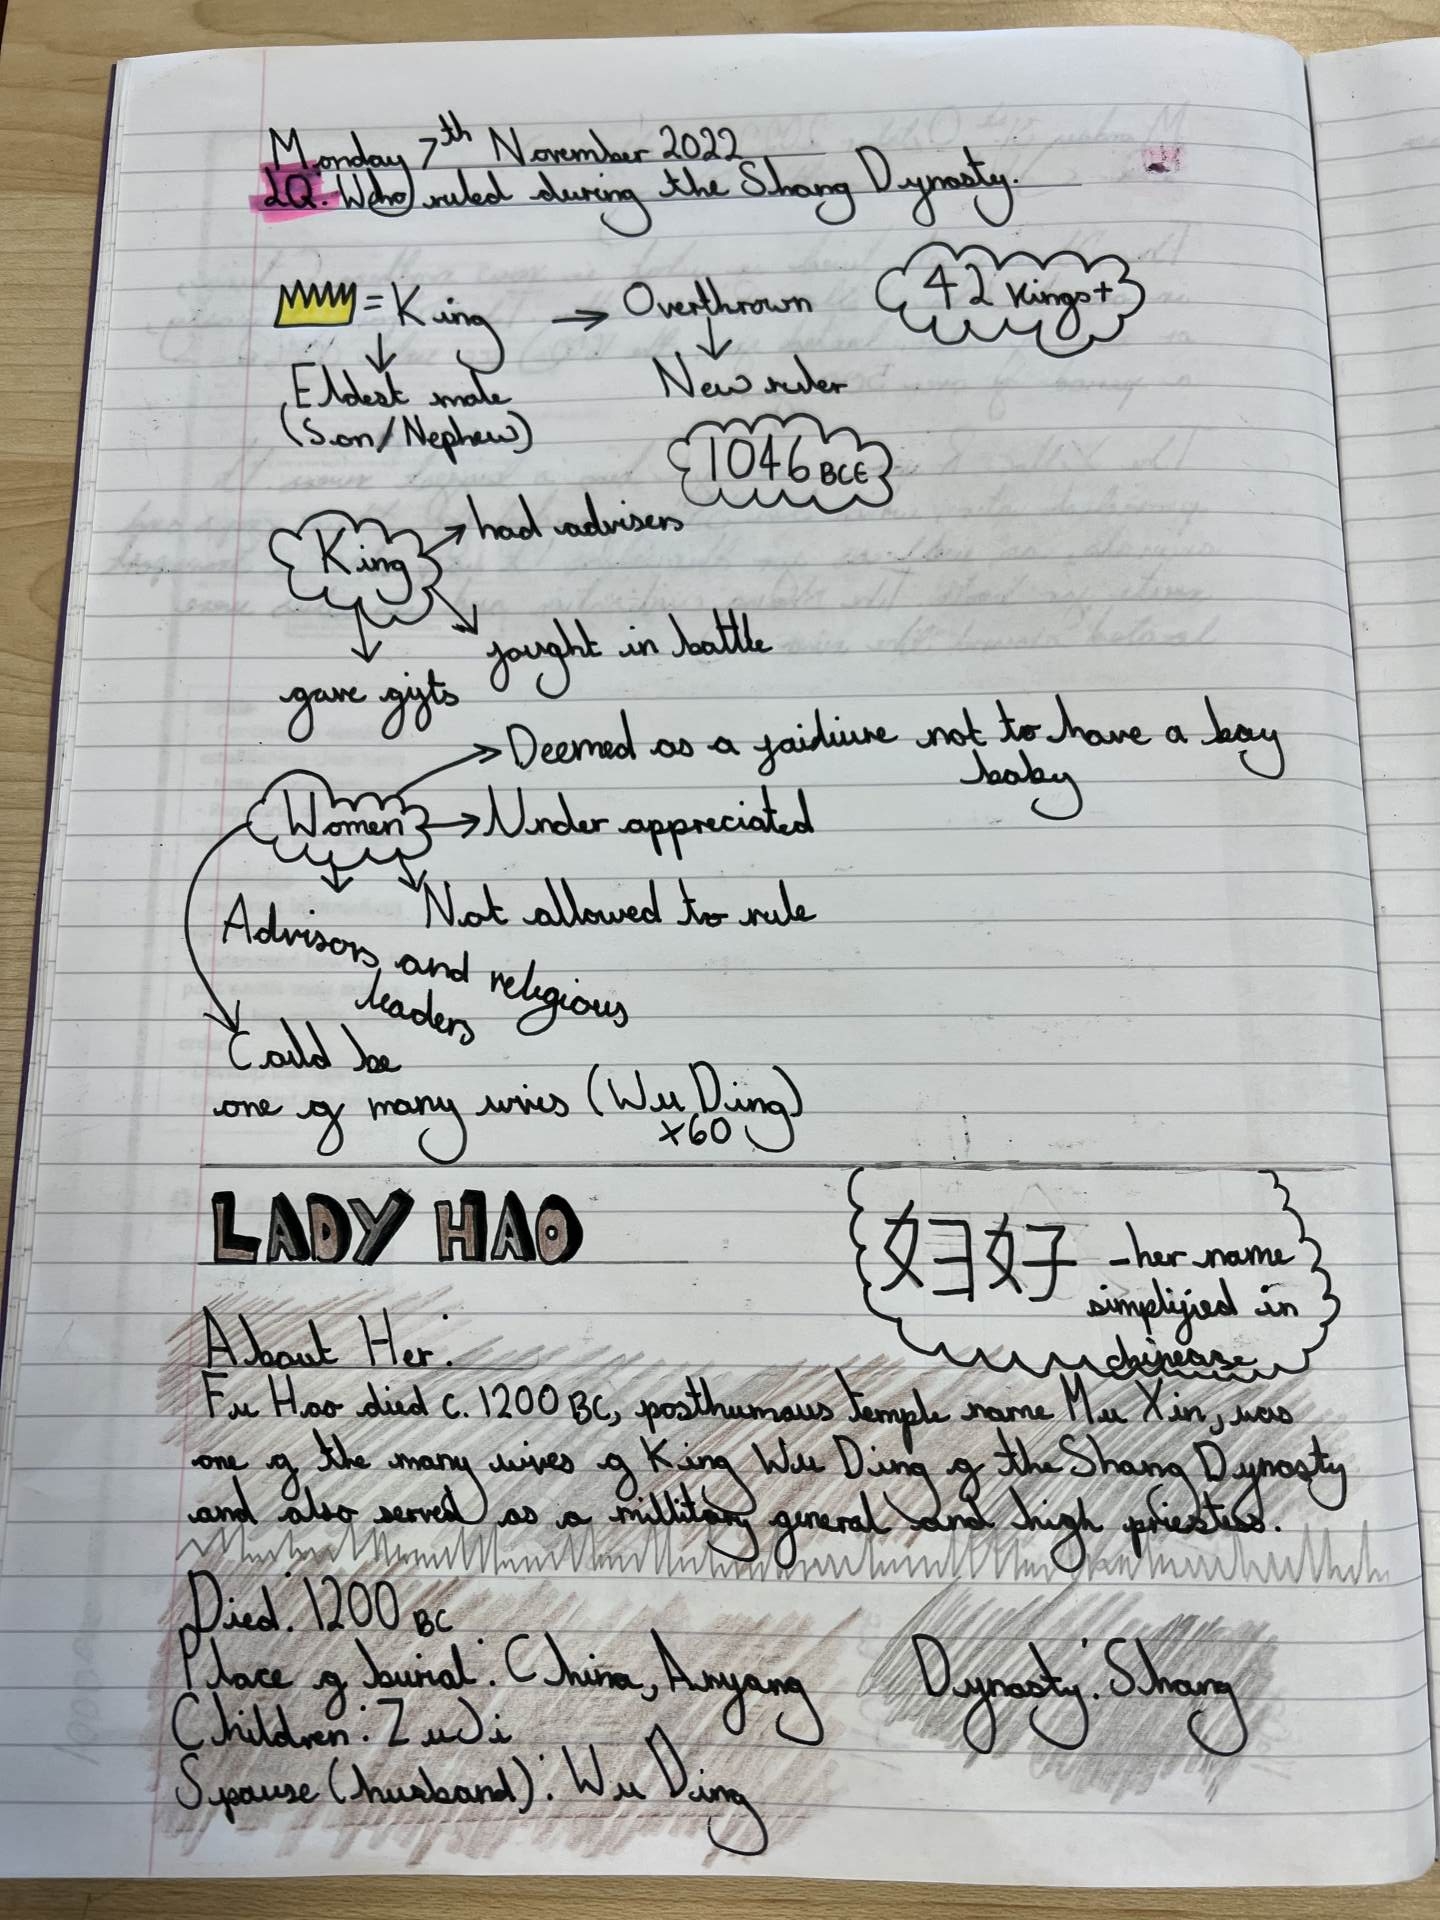 Monday 7th November 2022
LQ: Who ruled during the Shang Dynasty.
= King → Overthrown
42 Kings+
Eldest male
(Son/Nephew)
New ruler
1046 BCE
King
had advisers
fought in battle
gave gifts
Women
Deemed as a faidiure not to have a boy
baby
Under appreciated
Not allowed to rule
Advisors and religious
leaders
Could be
one of many wives (Wu Ding)
x60
LADY HAO
妇好 - her name
simplified in
chinease
About Her:
Fu Hao died c. 1200 BC, posthumous temple name Mu Xin, was
one of the many wives of King Wu Ding of the Shang Dynasty
and also served as a millitary general and high priestess.
Died: 1200 BC
Place of burial: China, Anyang
Dynasty: Shang
Children: Zu Ji
Spouse (husband): Wu Ding